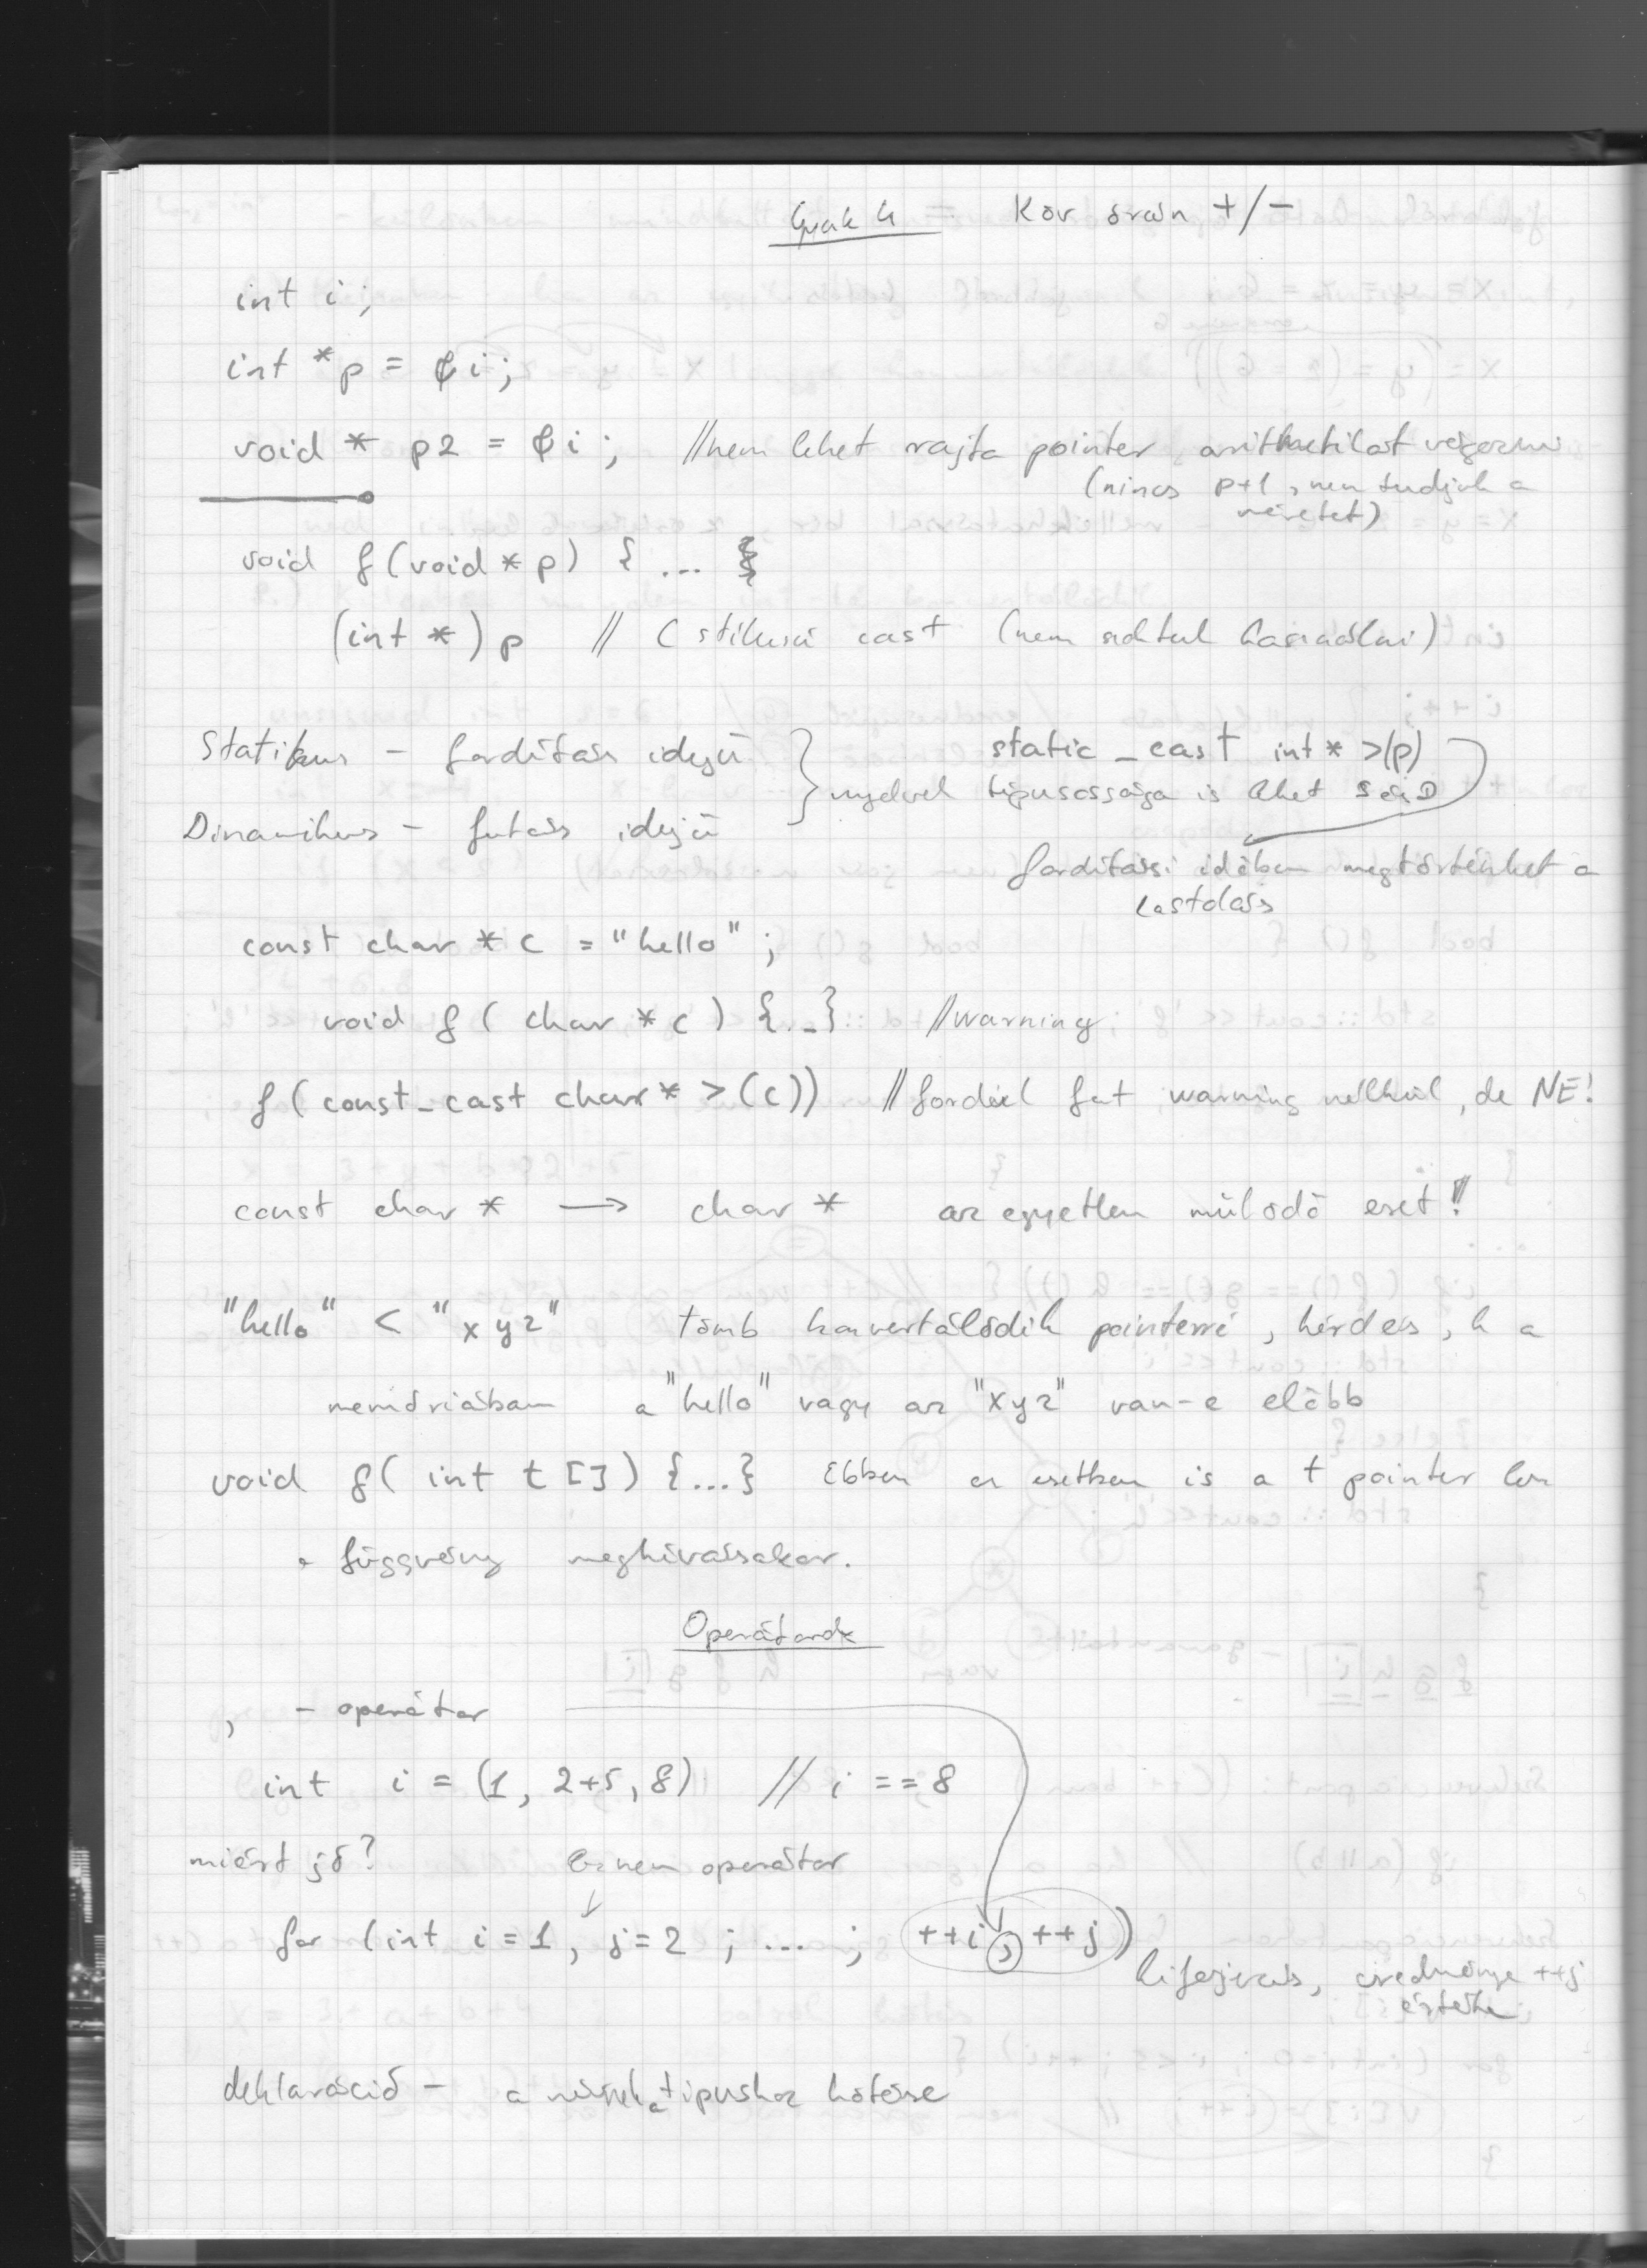 Gyak 4 = Köv órán +/-
int i;
int *p = &i;
void * p2 = &i; //nem lehet rajta pointer aritmetikát végezni
(nincs p+1, nem tudjuk a
méretét)
void f(void * p) { ... }
(int *) p // C stílusú cast (nem szoktuk használni)
Statikus - fordítás idejű
static_cast int * >(p)
nyelvek típusossága is lehet S és D
Dinamikus - futás idejű
fordítási időben megtörténhet a
castolás
const char * c = "hello";
void f( char * c) {...} //warning
f( const_cast char * >(c)) //fordul fut warning nélkül, de NE!
const char * → char * az egyetlen működő eset!!
"hello" < "xyz" tömb konvertálódik pointerré, kérdés, h a
memóriában a "hello" vagy az "xyz" van-e előbb
void f( int t[]) {...} Ebben az esetben is a t pointer lesz
a függvény meghívásakor.
Operátorok
, - operátor
int i = (1, 2+5, 8) // i == 8
miért jó? Ez nem operátor
for (int i=1, j=2 ; ... ; ++i, ++j)
kifejezés, eredménye ++j
értéke
deklaráció - a nevek a típushoz kötése